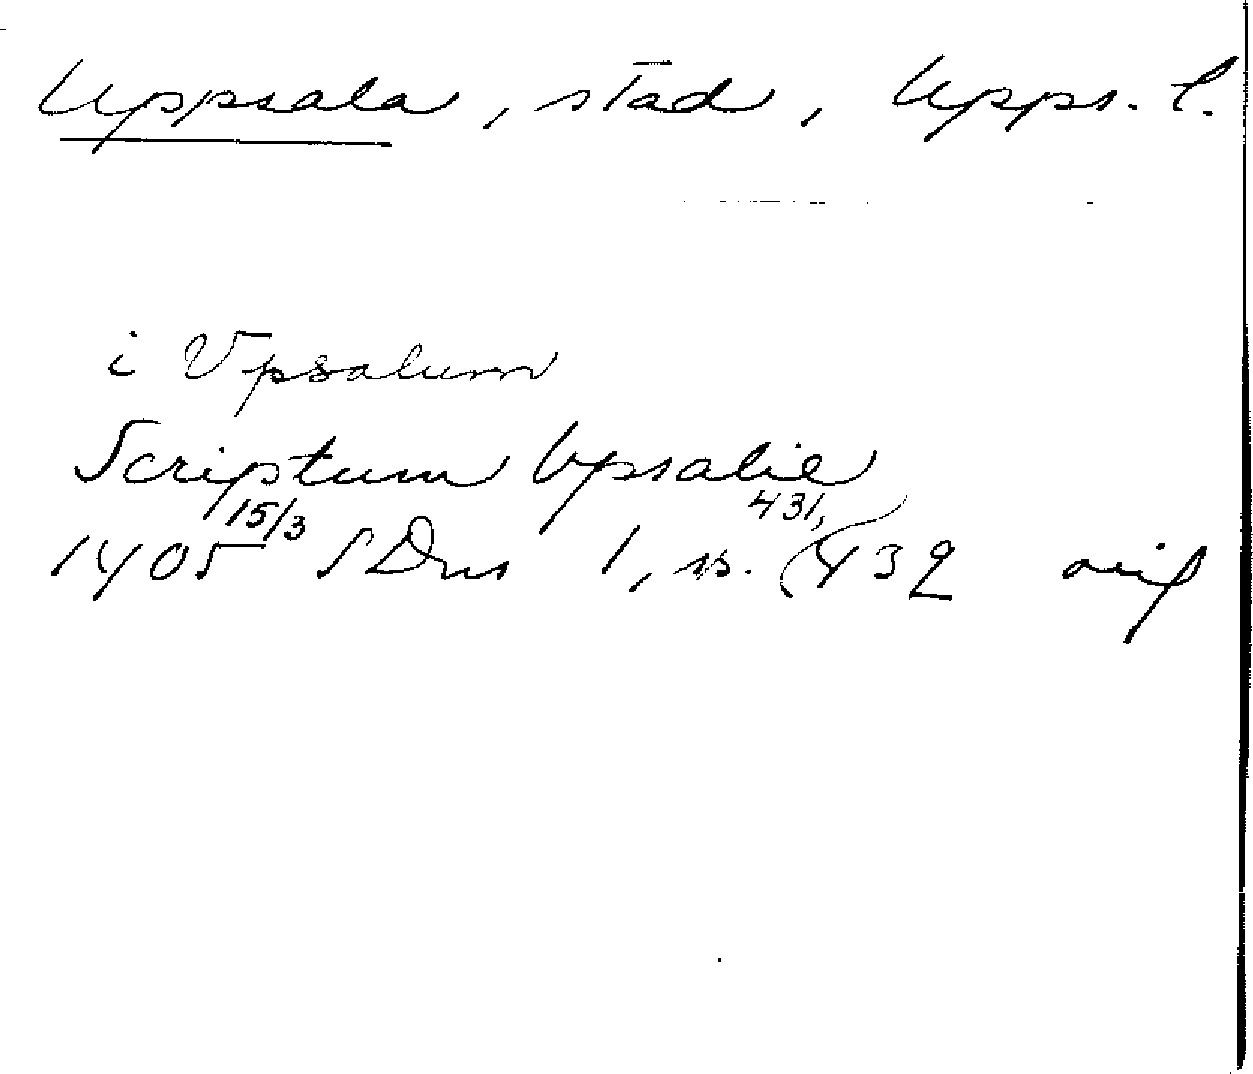 Uppsala, stad, Upps. l.
i Vpsalum
Scriptum Vpsalie
15/3 431,
1405 SDns 1, s. 432 orig